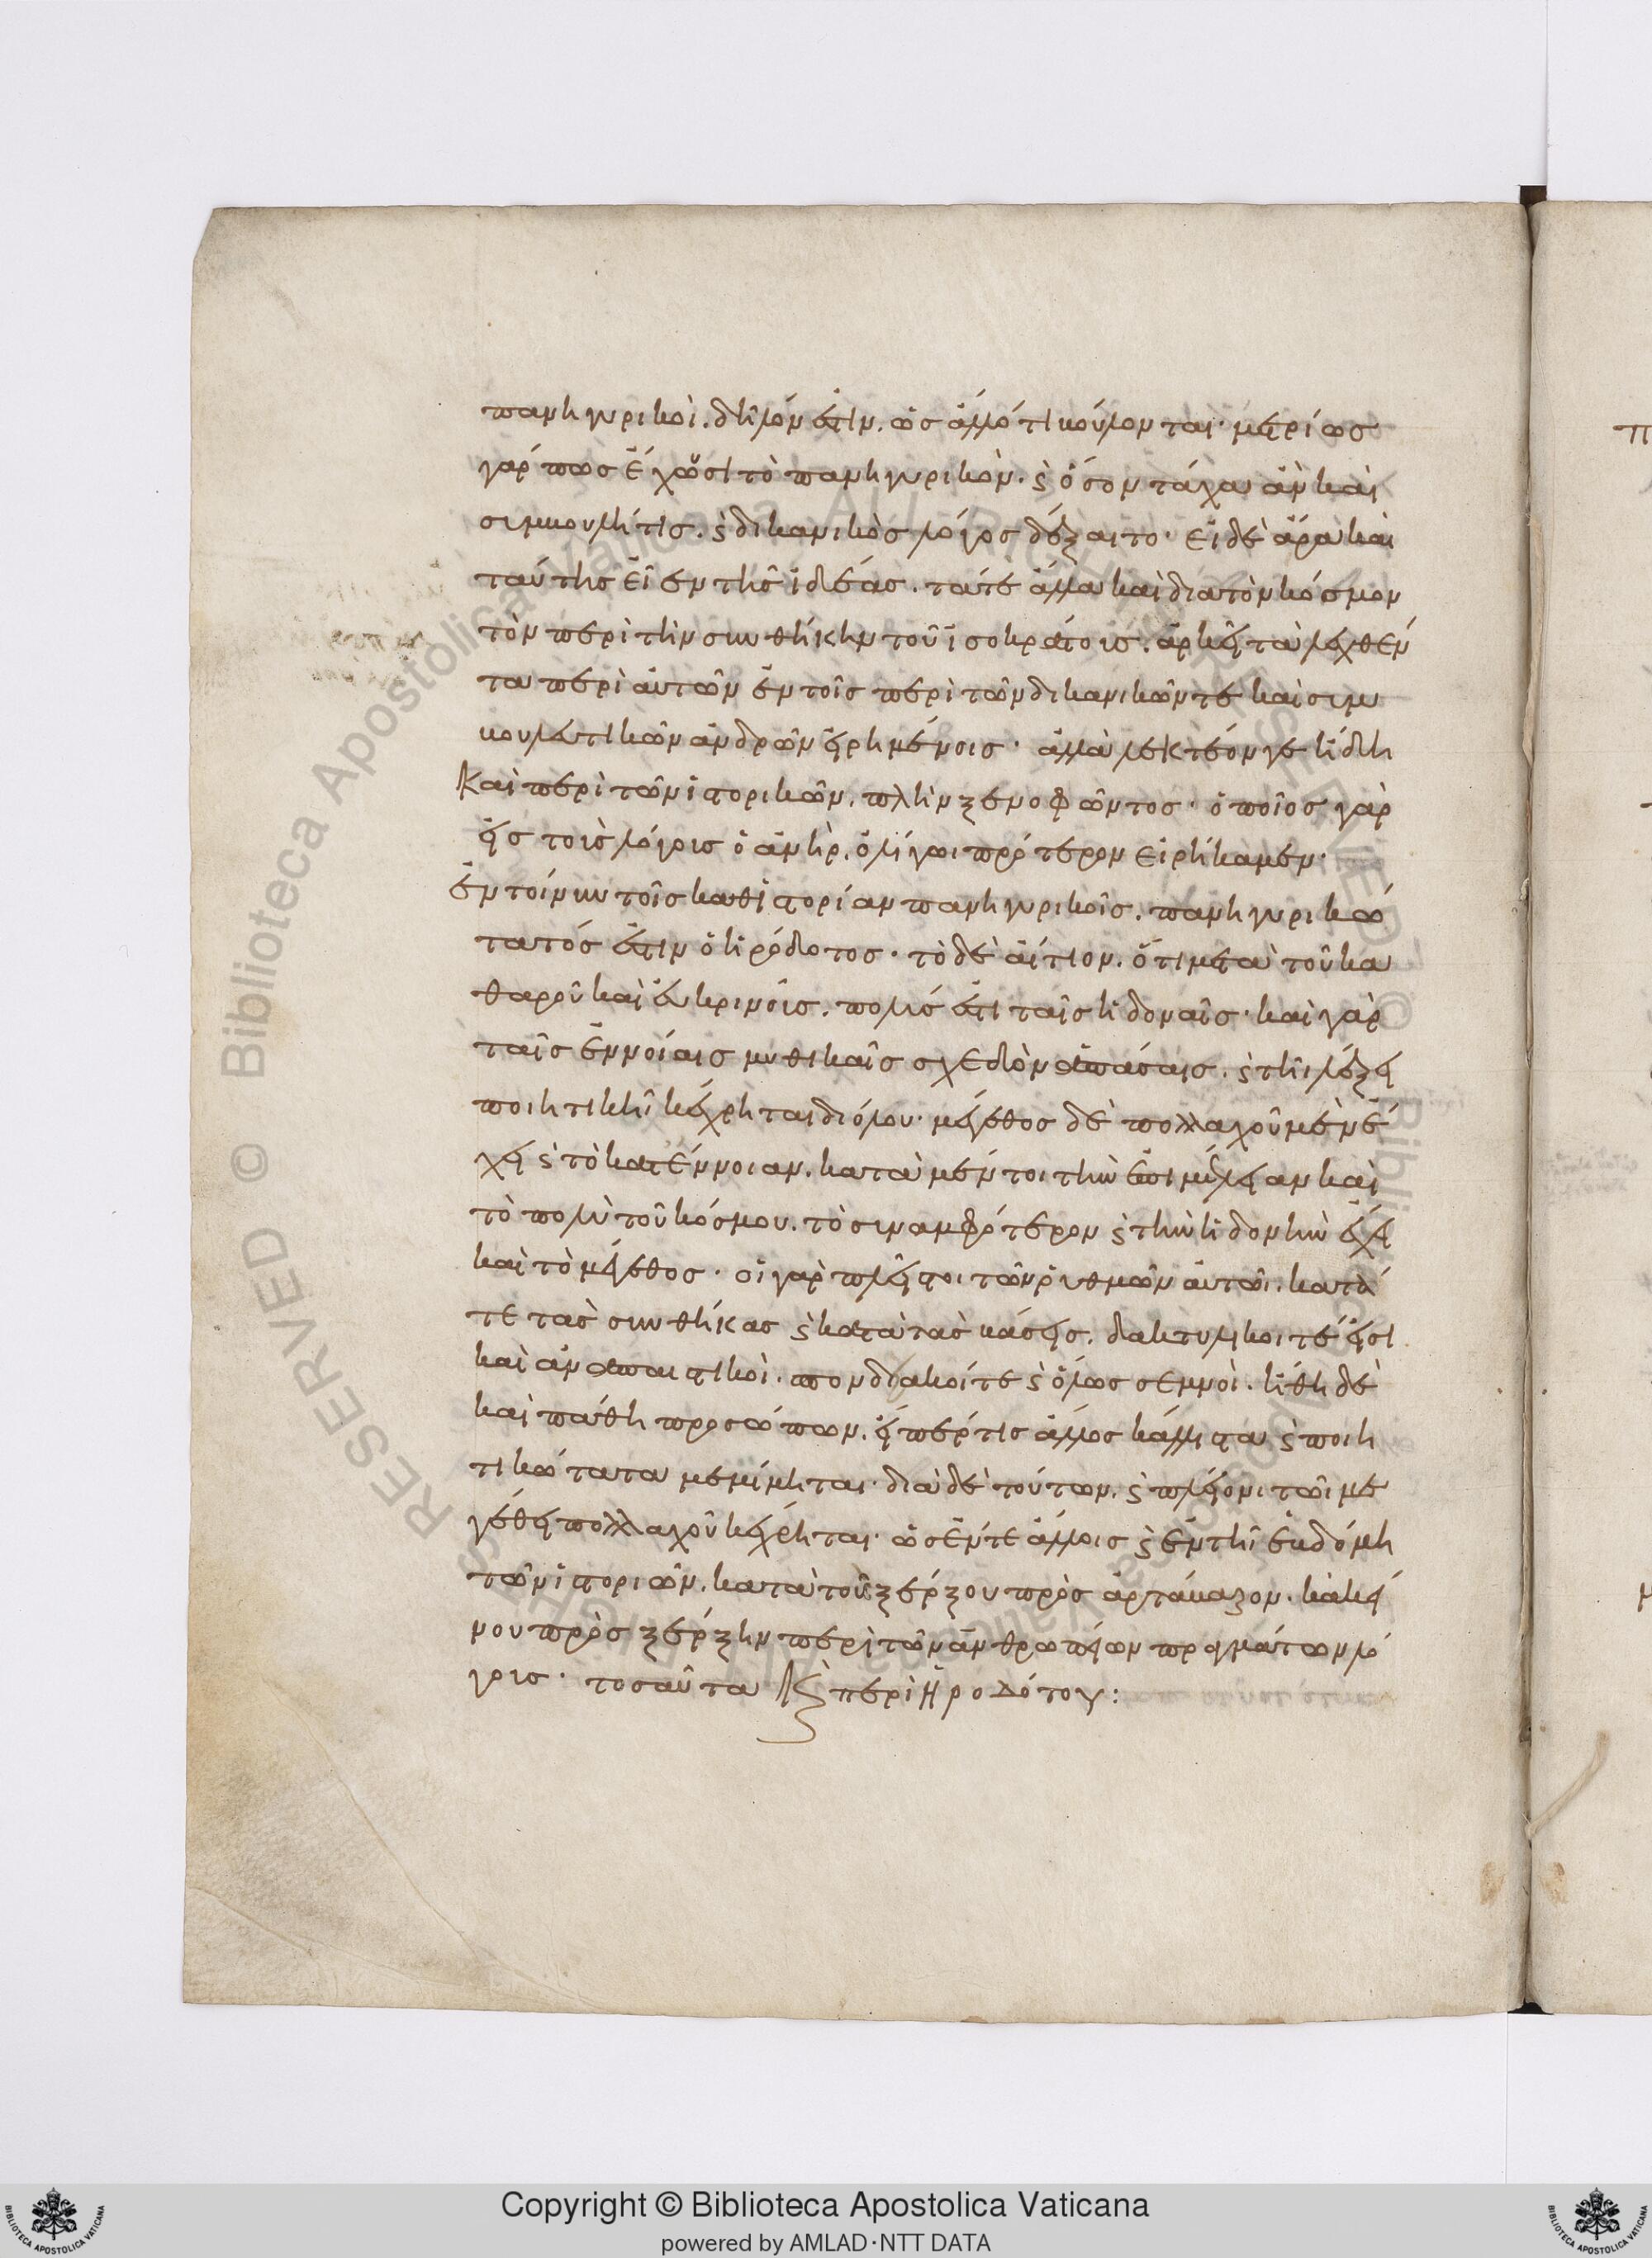 πανηγυρικοὶ. δῆλόν ἐστιν. ὡς ἄλλό τι βούλονται· μετρίως
γάρ πως ἔχουσι τὸ πανηγυρικὸν. ϛ ὅσον τάχα ἂν καὶ
συμβουλή τις. ϛ δικανικὸς λόγος δέξαιτο· εἰ δὲ ἄρα καὶ
ταύτης εἶεν τῆς ἰδέας. τά τε ἄλλα καὶ διὰ τὸν κόσμον
τὸν περὶ τὴν συνθήκην τοῦ ἰσοκράτους. ἀρκεῖ τὰ λεχθέν
τα περὶ αὐτῶν ἐν τοῖς περὶ τῶν δικανικῶν τε καὶ συμ
βουλευτικῶν ἀνδρῶν εἰρημένοις· ἀλλὰ λεκτέον γε ἤδη
Καὶ περὶ τῶν ἱστορικῶν. πλὴν ξενοφῶντος· ὁποῖος γὰρ
εἰς τοὺς λόγους ὁ ἀνὴρ. ὀλίγωι πρότερον εἰρήκαμεν·
ἐν τοίνυν τοῖς καθ' ἱστορίαν πανηγυρικοῖς. πανηγυρικώ
τατός ἐστιν ὁ ἡρόδοτος· τὸ δὲ αἴτιον. ὅτι μετὰ τοῦ κα
θαροῦ καὶ εὐκρινοῦς. πολύς ἐστι ταῖς ἡδοναῖς· καὶ γὰρ
ταῖς ἐννοίαις μυθικαῖς σχεδὸν ἁπάσαις. ϛ τῆι λέξει
ποιητικῆι κέχρηται διόλου· μέγεθος δὲ πολλαχοῦ μὲν ἔ
χει ϛ τὸ κατ' ἔννοιαν. κατὰ μέντοι τὴν ἐπιμέλειαν καὶ
τὸ πολὺ τοῦ κόσμου. τὸ συναμφότερον ϛ τὴν ἡδονὴν ἔχει
καὶ τὸ μέγεθος· οἱ γὰρ πλεῖστοι τῶν ῥυθμῶν αὐτῶι. κατά
τε τὰς συνθήκας ϛ κατὰ τὰς βάσεις. δακτυλικοί τέ εἰσι
καὶ ἀναπαιστικοὶ. σπονδιακοί τε ϛ ὅλως σεμνοὶ. ἤθη δὲ
καὶ πάθη προσώπων. εἴπερ τις ἄλλος κάλλιστα ϛ ποιη
τικώτατα μεμίμηται· διὰ δὲ τούτων. ϛ πλείονι τῶι με
γέθει πολλαχοῦ κέχρηται· ὡς ἔν τε ἄλλοις ϛ ἐν τῆι ἑβδόμη
τῶν ἱστοριῶν. κατὰ τοὺς ξέρξου πρὸς ἀρτάβαζον. κἀκεί
νου πρὸς ξέρξην περὶ τῶν ἀνθρωπείων πραγμάτων λό
γους· τοσαῦτα καὶ περὶ Ἡροδότου:
Copyright © Biblioteca Apostolica Vaticana
powered by AMLAD·NTT DATA